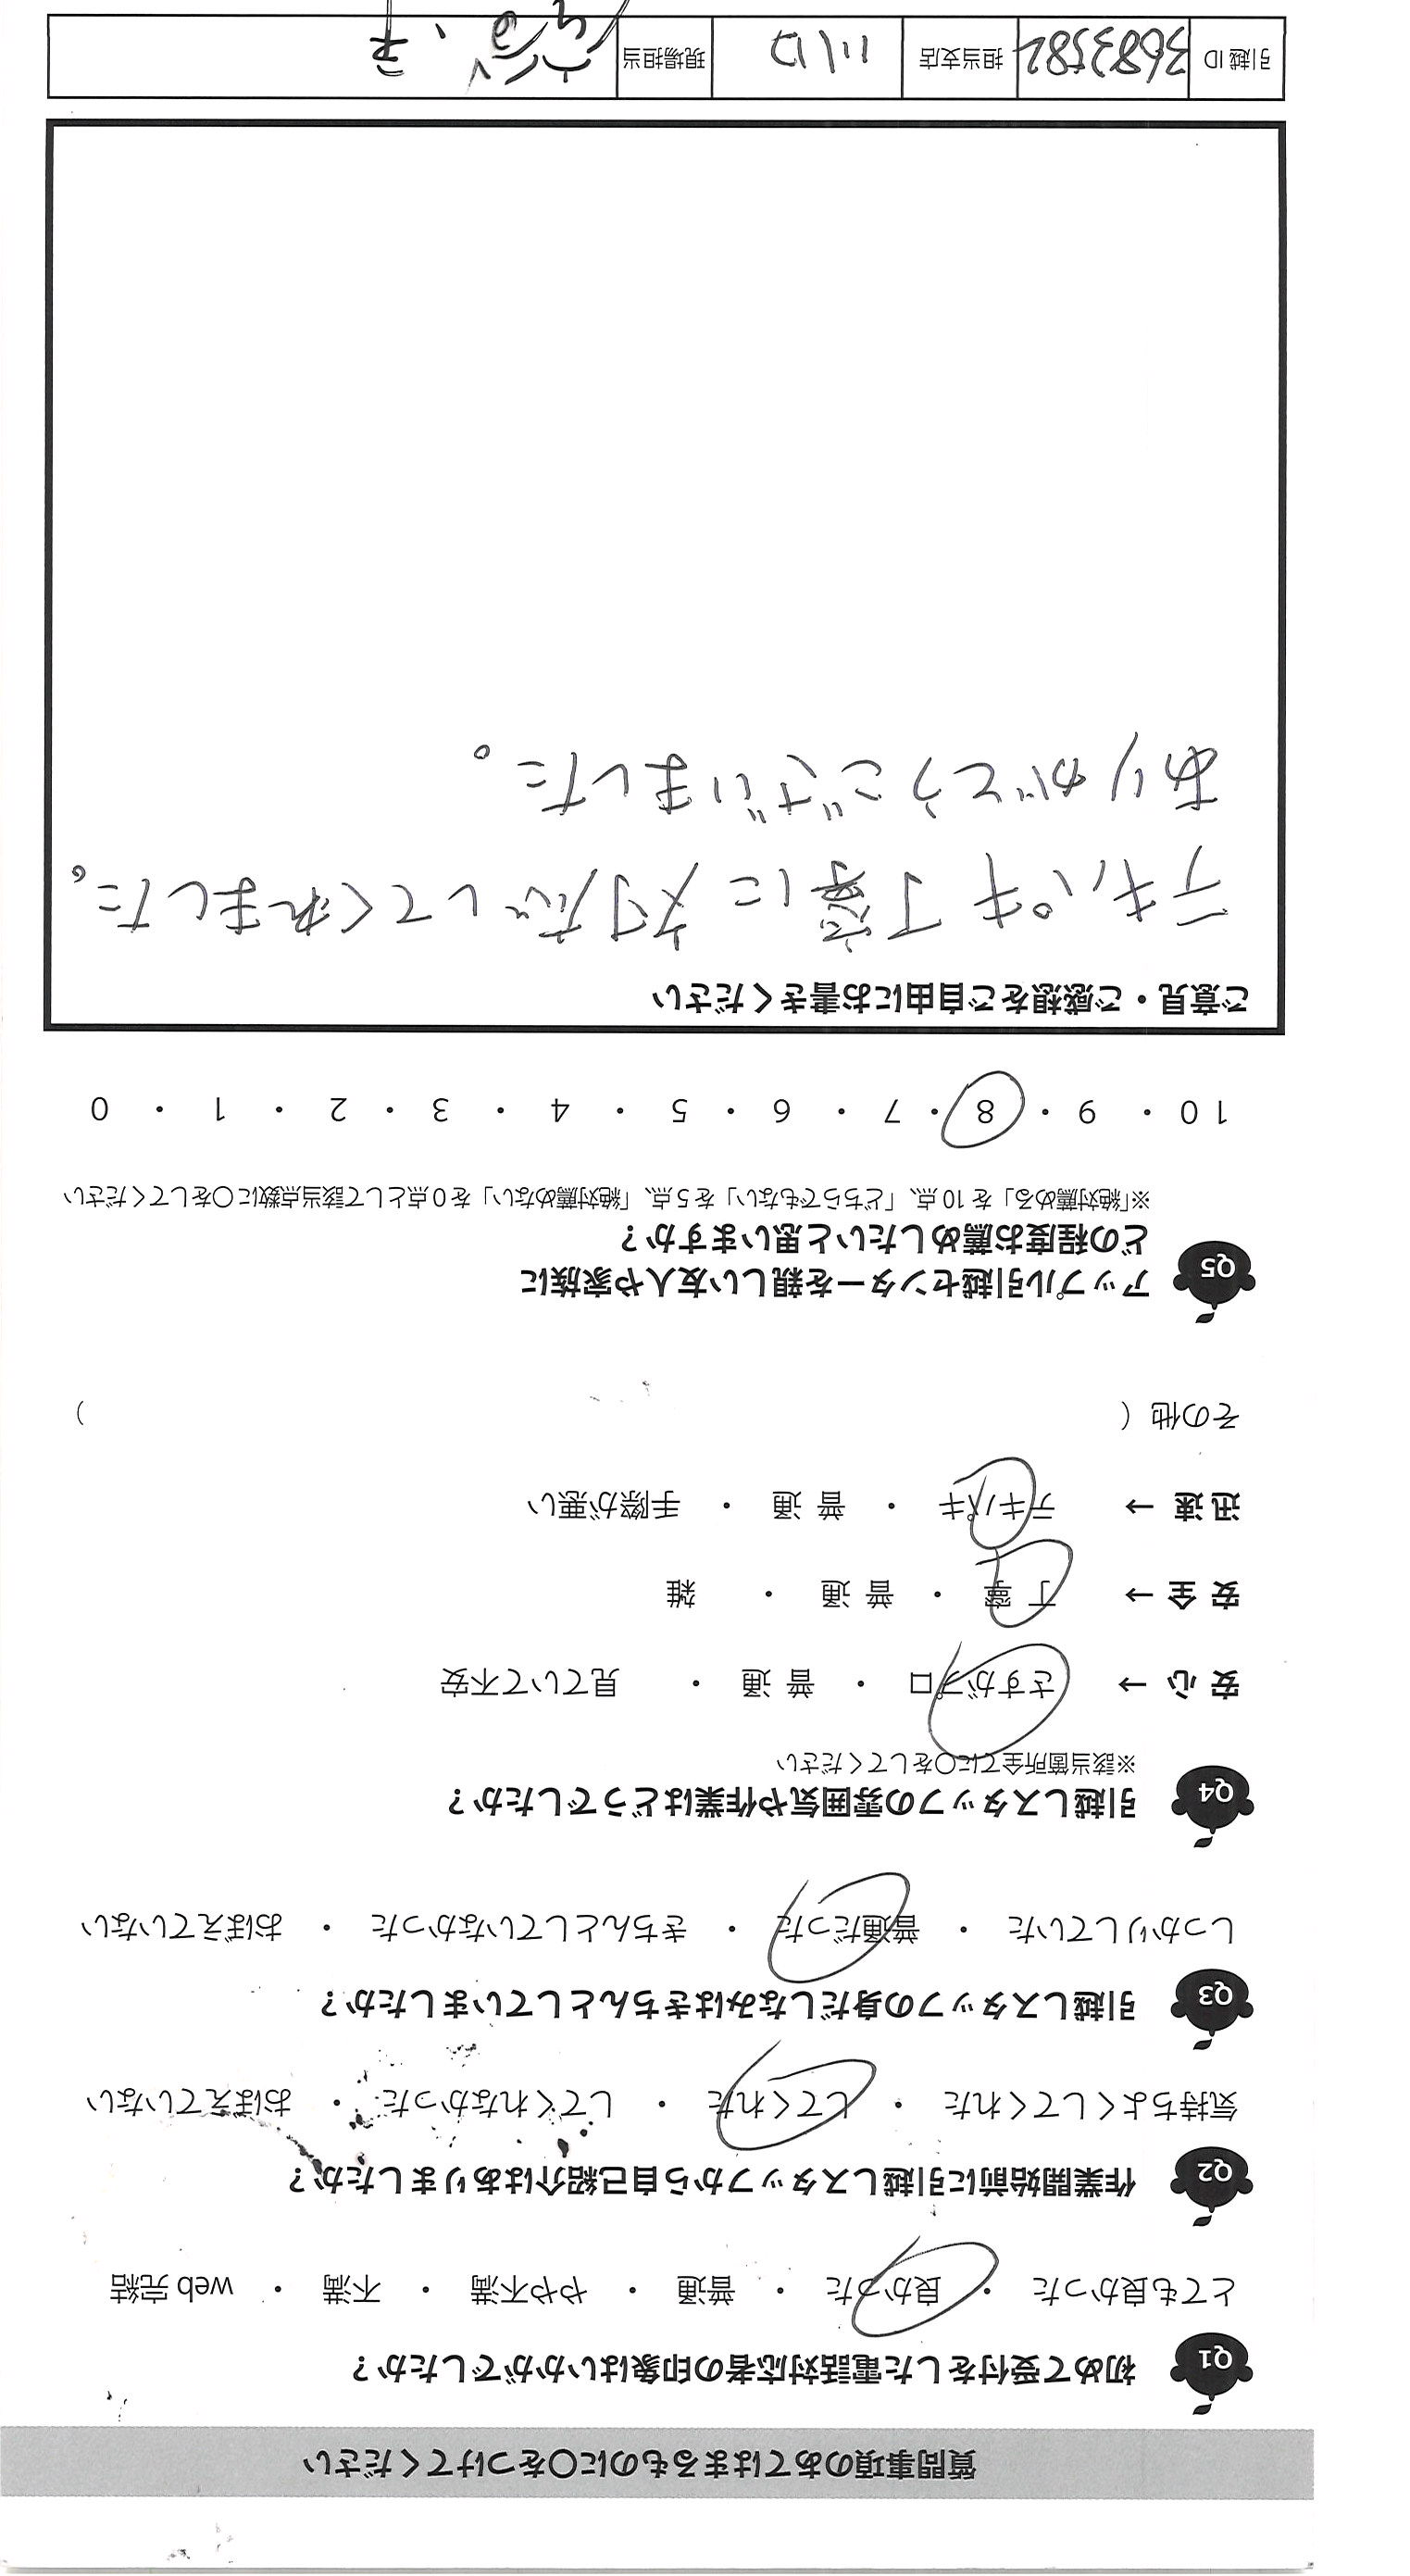 質問事項のあてはまるものに〇をつけてください
Q1 初めて受付をした電話対応者の印象はいかがでしたか?
とても良かった ・ 良かった ・ 普通 ・ やや不満 ・ 不満 ・ web 完結
Q2 作業開始前に引越しスタッフから自己紹介はありましたか?
気持ちよくしてくれた ・ してくれた ・ してくれなかった ・ おぼえていない
Q3 引越しスタッフの身だしなみはきちんとしていましたか?
しっかりしていた ・ 普通だった ・ きちんとしていなかった ・ おぼえていない
Q4 引越しスタッフの雰囲気や作業はどうでしたか?
※該当箇所全てに〇をしてください
安 心 → さすがプロ ・ 普 通 ・ 見ていて不安
安 全 → 丁 寧 ・ 普 通 ・ 雑
迅 速 → テキパキ ・ 普 通 ・ 手際が悪い
その他 ( )
Q5 アップル引越センターを親しい友人や家族に
どの程度お薦めしたいと思いますか?
※「絶対薦める」を 10 点、「どちらでもない」を 5 点、「絶対薦めない」を 0 点として該当点数に〇をしてください
10 ・ 9 ・ 8 ・ 7 ・ 6 ・ 5 ・ 4 ・ 3 ・ 2 ・ 1 ・ 0
ご意見・ご感想をご自由にお書きください
テキパキ丁寧に対応してくれました。
ありがとうございました。
引越 ID 3683582 担当支店 川口 現場担当